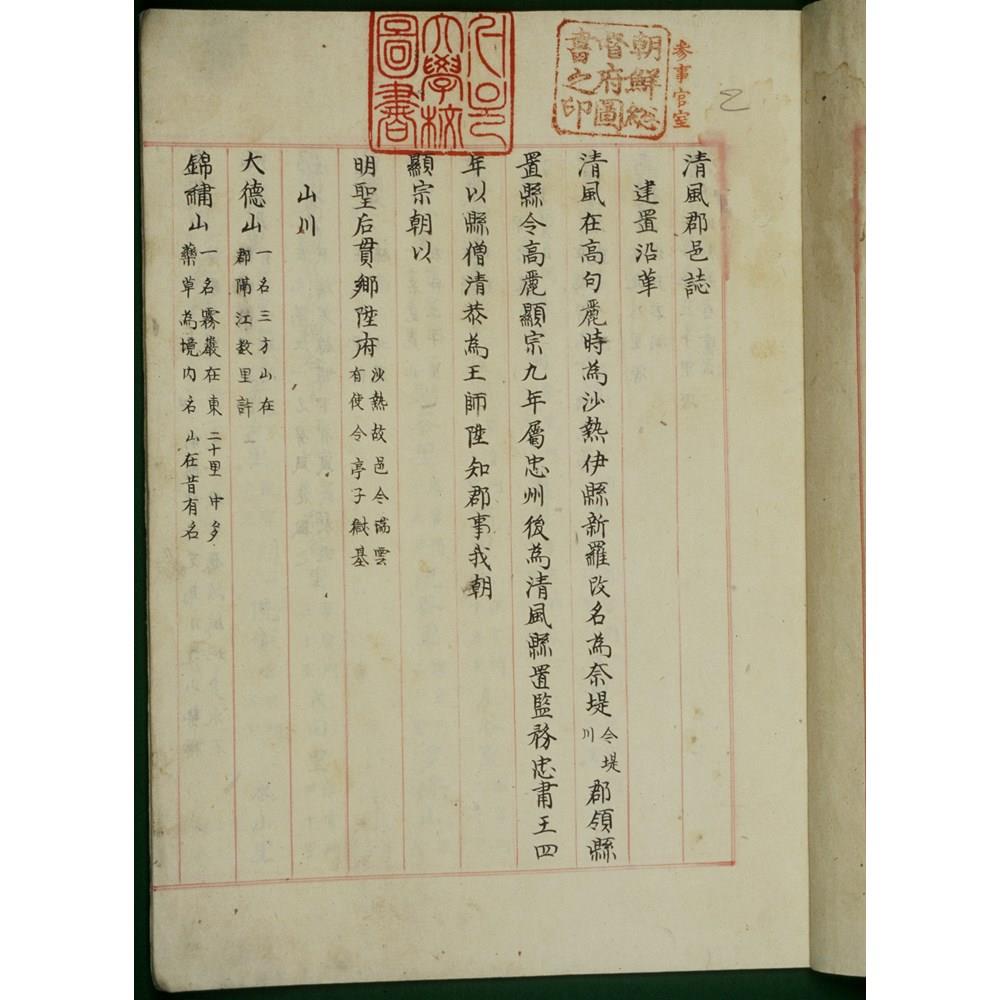 参事官室
朝鮮總督府圖書之印
서울大學校圖書
乙
清風郡邑誌
建置沿革
清風在高句麗時為沙熱伊縣新羅改名為奈堤今堤川郡領縣
置縣令高麗顯宗九年屬忠州後為清風縣置監務忠肅王四
年以縣僧清恭為王師陞知郡事我朝
顯宗朝以
明聖后貫鄉陞府沙熱故邑令滿雲有使令亭子獄基
山川
大德山一名三方山在郡滿江数里許
錦繡山一名霧巖在東二十里中多藥草為境内名山在昔有名